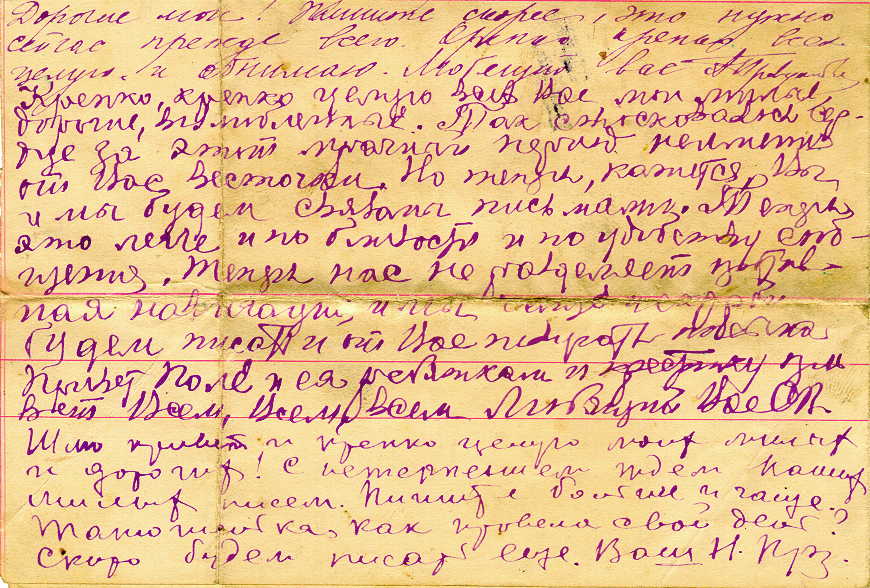 Дорогие мои! Пишите скорее, это нужно
сейчас прежде всего. Крепко крепко всех
целую и обнимаю. Любящий вас
Крепко, крепко целую всех Вас мои милые
дорогие, возлюбленные. Так стосковалось сер-
дце за этот мрачный период неимения
от Вас весточки. Но теперь, кажется, Вы
и мы будем связаны письмами. Теперь
это легче и по близости и по удобству сооб-
щения. Теперь нас не разделяет
ная навигация, и мы
будем писать и от Вас получать
Привет Поле и ея и при
вет Всем, Всем, Всем Любящий Вас
Шлю привет и крепко целую моих милых
и дорогих! С нетерпением ждем Ваших
милых писем. Пишите больше и чаще.
как провела свой день?
Скоро будем писать еще. Ваш Н. Прз.